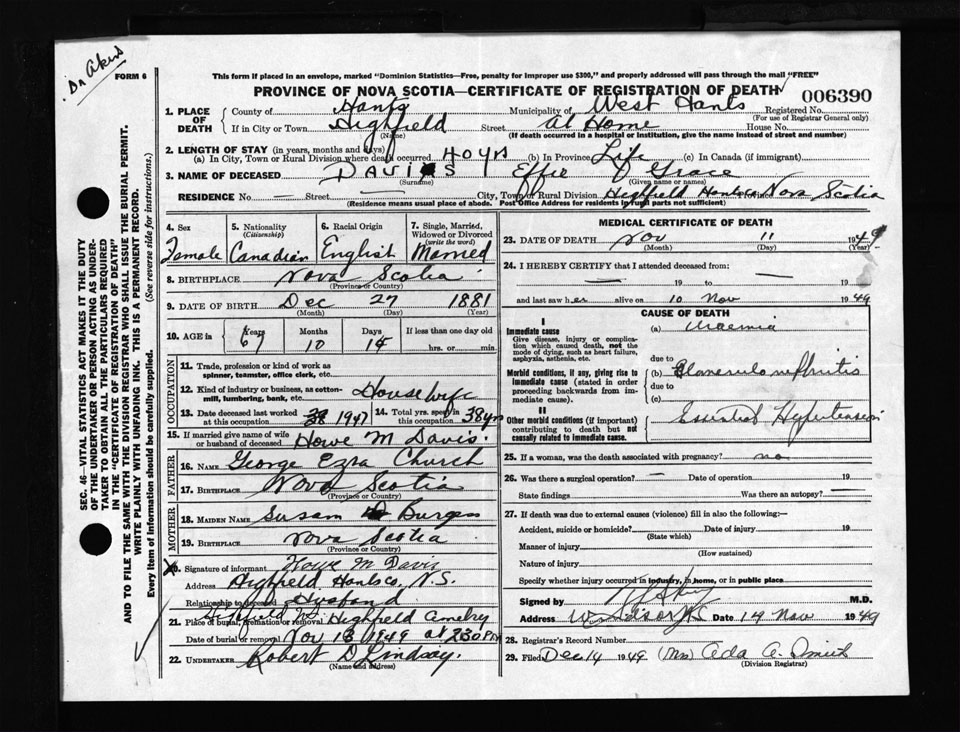 Dr Akins
FORM 6
This form if placed in an envelope, marked "Dominion Statistics—Free, penalty for improper use $300," and properly addressed will pass through the mail "FREE"
PROVINCE OF NOVA SCOTIA—CERTIFICATE OF REGISTRATION OF DEATH
006390
1. PLACE OF DEATH
County of Hants Municipality of West Hants Registered No.
(For use of Registrar General only)
If in City or Town Highfield Street At Home House No.
(Name) (If death occurred in a hospital or institution, give its name instead of street and number)
2. LENGTH OF STAY (in years, months and days)
(a) In City, Town or Rural Division where death occurred 40 yrs (b) In Province Life (c) In Canada (if immigrant)
3. NAME OF DECEASED DAVIS Effie Grace
(Surname) (Given name or names)
RESIDENCE No. — Street — City, Town or Rural Division Highfield Hants Co Province Nova Scotia
(Residence means usual place of abode. Post Office Address for residents in rural parts not sufficient)
4. Sex Female
5. Nationality (Citizenship) Canadian
6. Racial Origin English
7. Single, Married, Widowed or Divorced (write the word) Married
8. BIRTHPLACE Nova Scotia
(Province or Country)
9. DATE OF BIRTH Dec 27 1881
(Month) (Day) (Year)
10. AGE in Years 67 Months 10 Days 14 If less than one day old
hrs. or min.
OCCUPATION
11. Trade, profession or kind of work as
spinner, teamster, office clerk, etc.
12. Kind of industry or business, as cotton-
mill, lumbering, bank, etc. Housewife
13. Date deceased last worked at this occupation 1947 14. Total yrs. spent in this occupation 38 yrs
15. If married give name of wife or husband of deceased Howe M Davis.
FATHER
16. NAME George Ezra Church
17. BIRTHPLACE Nova Scotia
(Province or Country)
MOTHER
18. MAIDEN NAME Susan Burgess
19. BIRTHPLACE Nova Scotia
(Province or Country)
20. Signature of informant Howe M Davis
Address Highfield Hants Co. N.S.
Relationship to deceased Husband
21. Place of burial, cremation or removal Highfield
Date of burial or removal Nov 13 1949 at 2:30 PM
22. UNDERTAKER Robert D Lindsay.
(Name and address)
MEDICAL CERTIFICATE OF DEATH
23. DATE OF DEATH Nov 11 1949
(Month) (Day) (Year)
24. I HEREBY CERTIFY that I attended deceased from: —
— 19 to — 19
and last saw her alive on 10 Nov 1949
CAUSE OF DEATH
I
Immediate cause
Give disease, injury or complication which caused death, not the mode of dying, such as heart failure, asphyxia, asthenia, etc.
(a) Uraemia
due to
Morbid conditions, if any, giving rise to immediate cause (stated in order proceeding backwards from immediate cause).
(b) Glomerulo nephritis
due to
(c)
II
Other morbid conditions (if important) contributing to death but not causally related to immediate cause.
Essential Hypertension
25. If a woman, was the death associated with pregnancy? no
26. Was there a surgical operation? — Date of operation 19
State findings Was there an autopsy? —
27. If death was due to external causes (violence) fill in also the following:—
Accident, suicide or homicide? Date of injury 19
(State which)
Manner of injury
(How sustained)
Nature of injury
Specify whether injury occurred in industry, in home, or in public place
Signed by M.D.
Address Windsor Date 14 Nov 1949
28. Registrar's Record Number
29. Filed Dec 14 1949 (Mrs) Ada A. Smith
(Division Registrar)
SEC. 46—VITAL STATISTICS ACT MAKES IT THE DUTY
OF THE UNDERTAKER OR PERSON ACTING AS UNDER-
TAKER TO OBTAIN ALL THE PARTICULARS REQUIRED
IN THE "CERTIFICATE OF REGISTRATION OF DEATH"
AND TO FILE THE SAME WITH THE DIVISION REGISTRAR WHO SHALL ISSUE THE BURIAL PERMIT.
WRITE PLAINLY WITH UNFADING INK. THIS IS A PERMANENT RECORD.
Every item of Information should be carefully supplied. (See reverse side for instructions.)